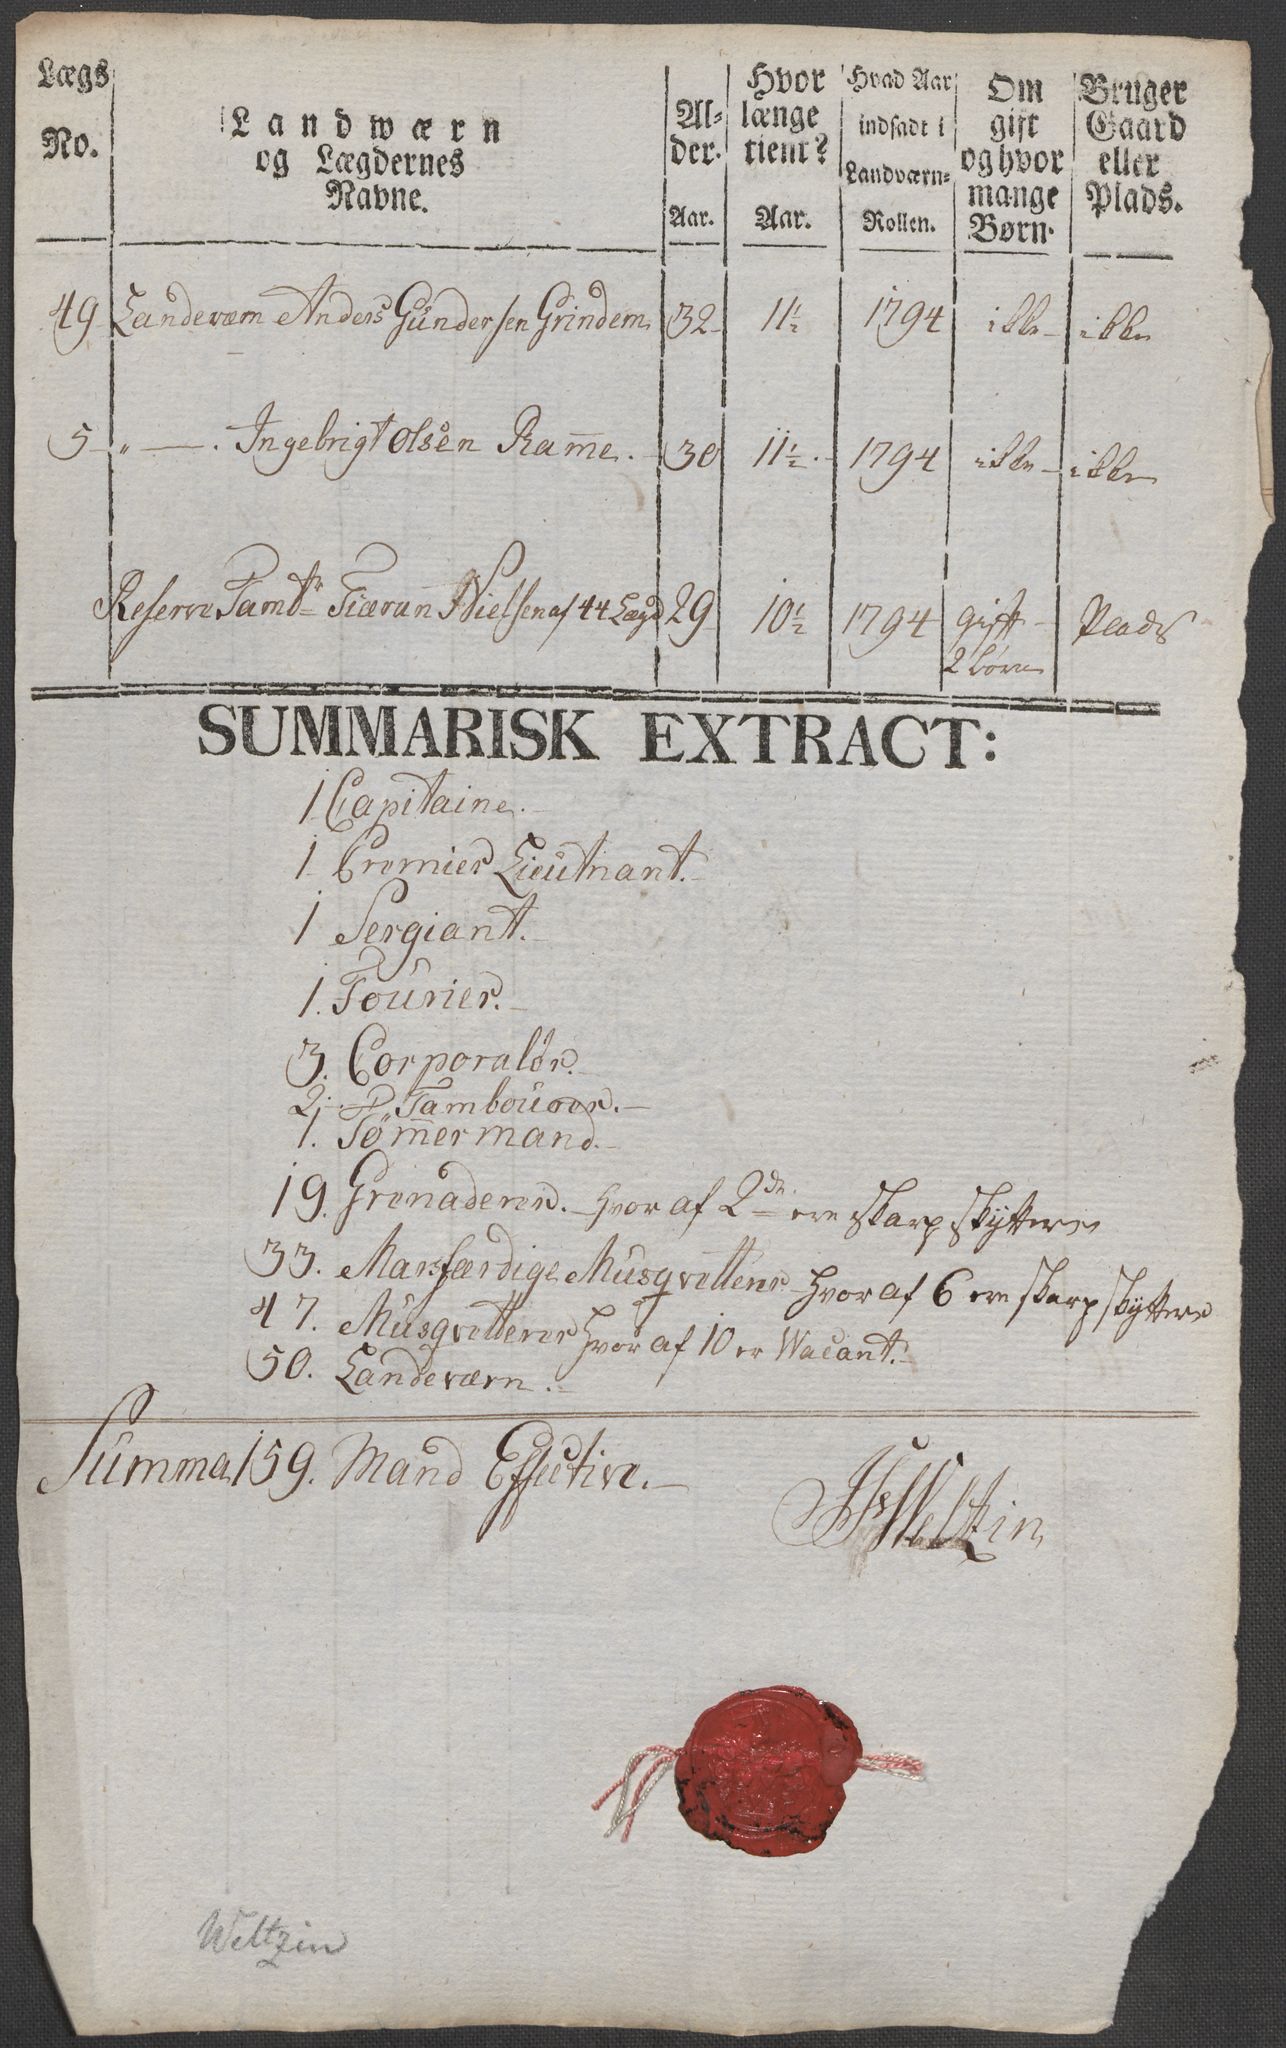 Lægs No. | Landwærn og Lægdernes Navne. | Al-der. Aar. | Hvor længe tient? Aar. | Hvad Aar indsadt i Landværn-Rollen. | Om gift og hvor mange Børn. | Bruger Gaard eller Plads.
49 Landeværn Anders Gundersen Grindem 32 11½ 1794 ikke ikke
5 " — . Ingebrigt Olsen Ram̅e. 30 11½. 1794 ikke ikke
Reserve Tambr Nielsen af 44 Lægd 29 10½ 1794 gift Plads
2 børn
SUMMARISK EXTRACT:
1 Capitaine.
1 Premier Lieutnant.
1 Sergiant.
1. Fourier.
3. Corporaler.
2. Tambourer.
1. Töm̅ermand.
19. Grenaderer. hvor af 2de ere skarp skyttere
33. Marsfærdige Musqvetterer hvor af 6 ere skarp skyttere
47. Musqvetterer hvor af 10 er Vacant.
50. Landeværn.
Summa 159. Mand Effective.
Weltzin
Weltzin